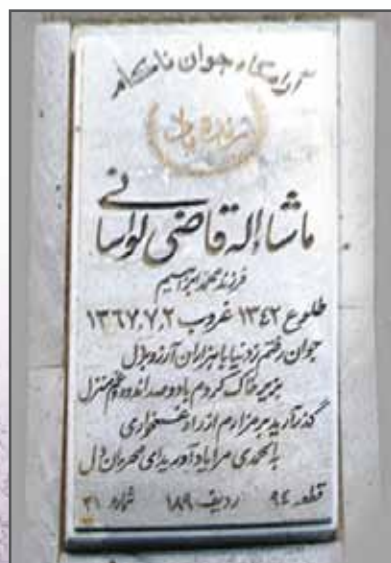 آرامگاه جوان ناکام
زنده یاد
ماشااله قاضی لواسانی
فرزند محمدابراهیم
طلوع ۱۳۴۲ غروب ۱۳۶۷,۷,۲
جوان رفتم ز دنیا با هزاران آرزو بر دل
بزیر خاک کردم با دو صد اندوه و غم منزل
گذر آرید بر مزارم از ره غمخواری
با لحمدی مرا یاد آورید ای مهربان دل
قطعه ۹۴ ردیف ۱۸۹ شماره ۳۱